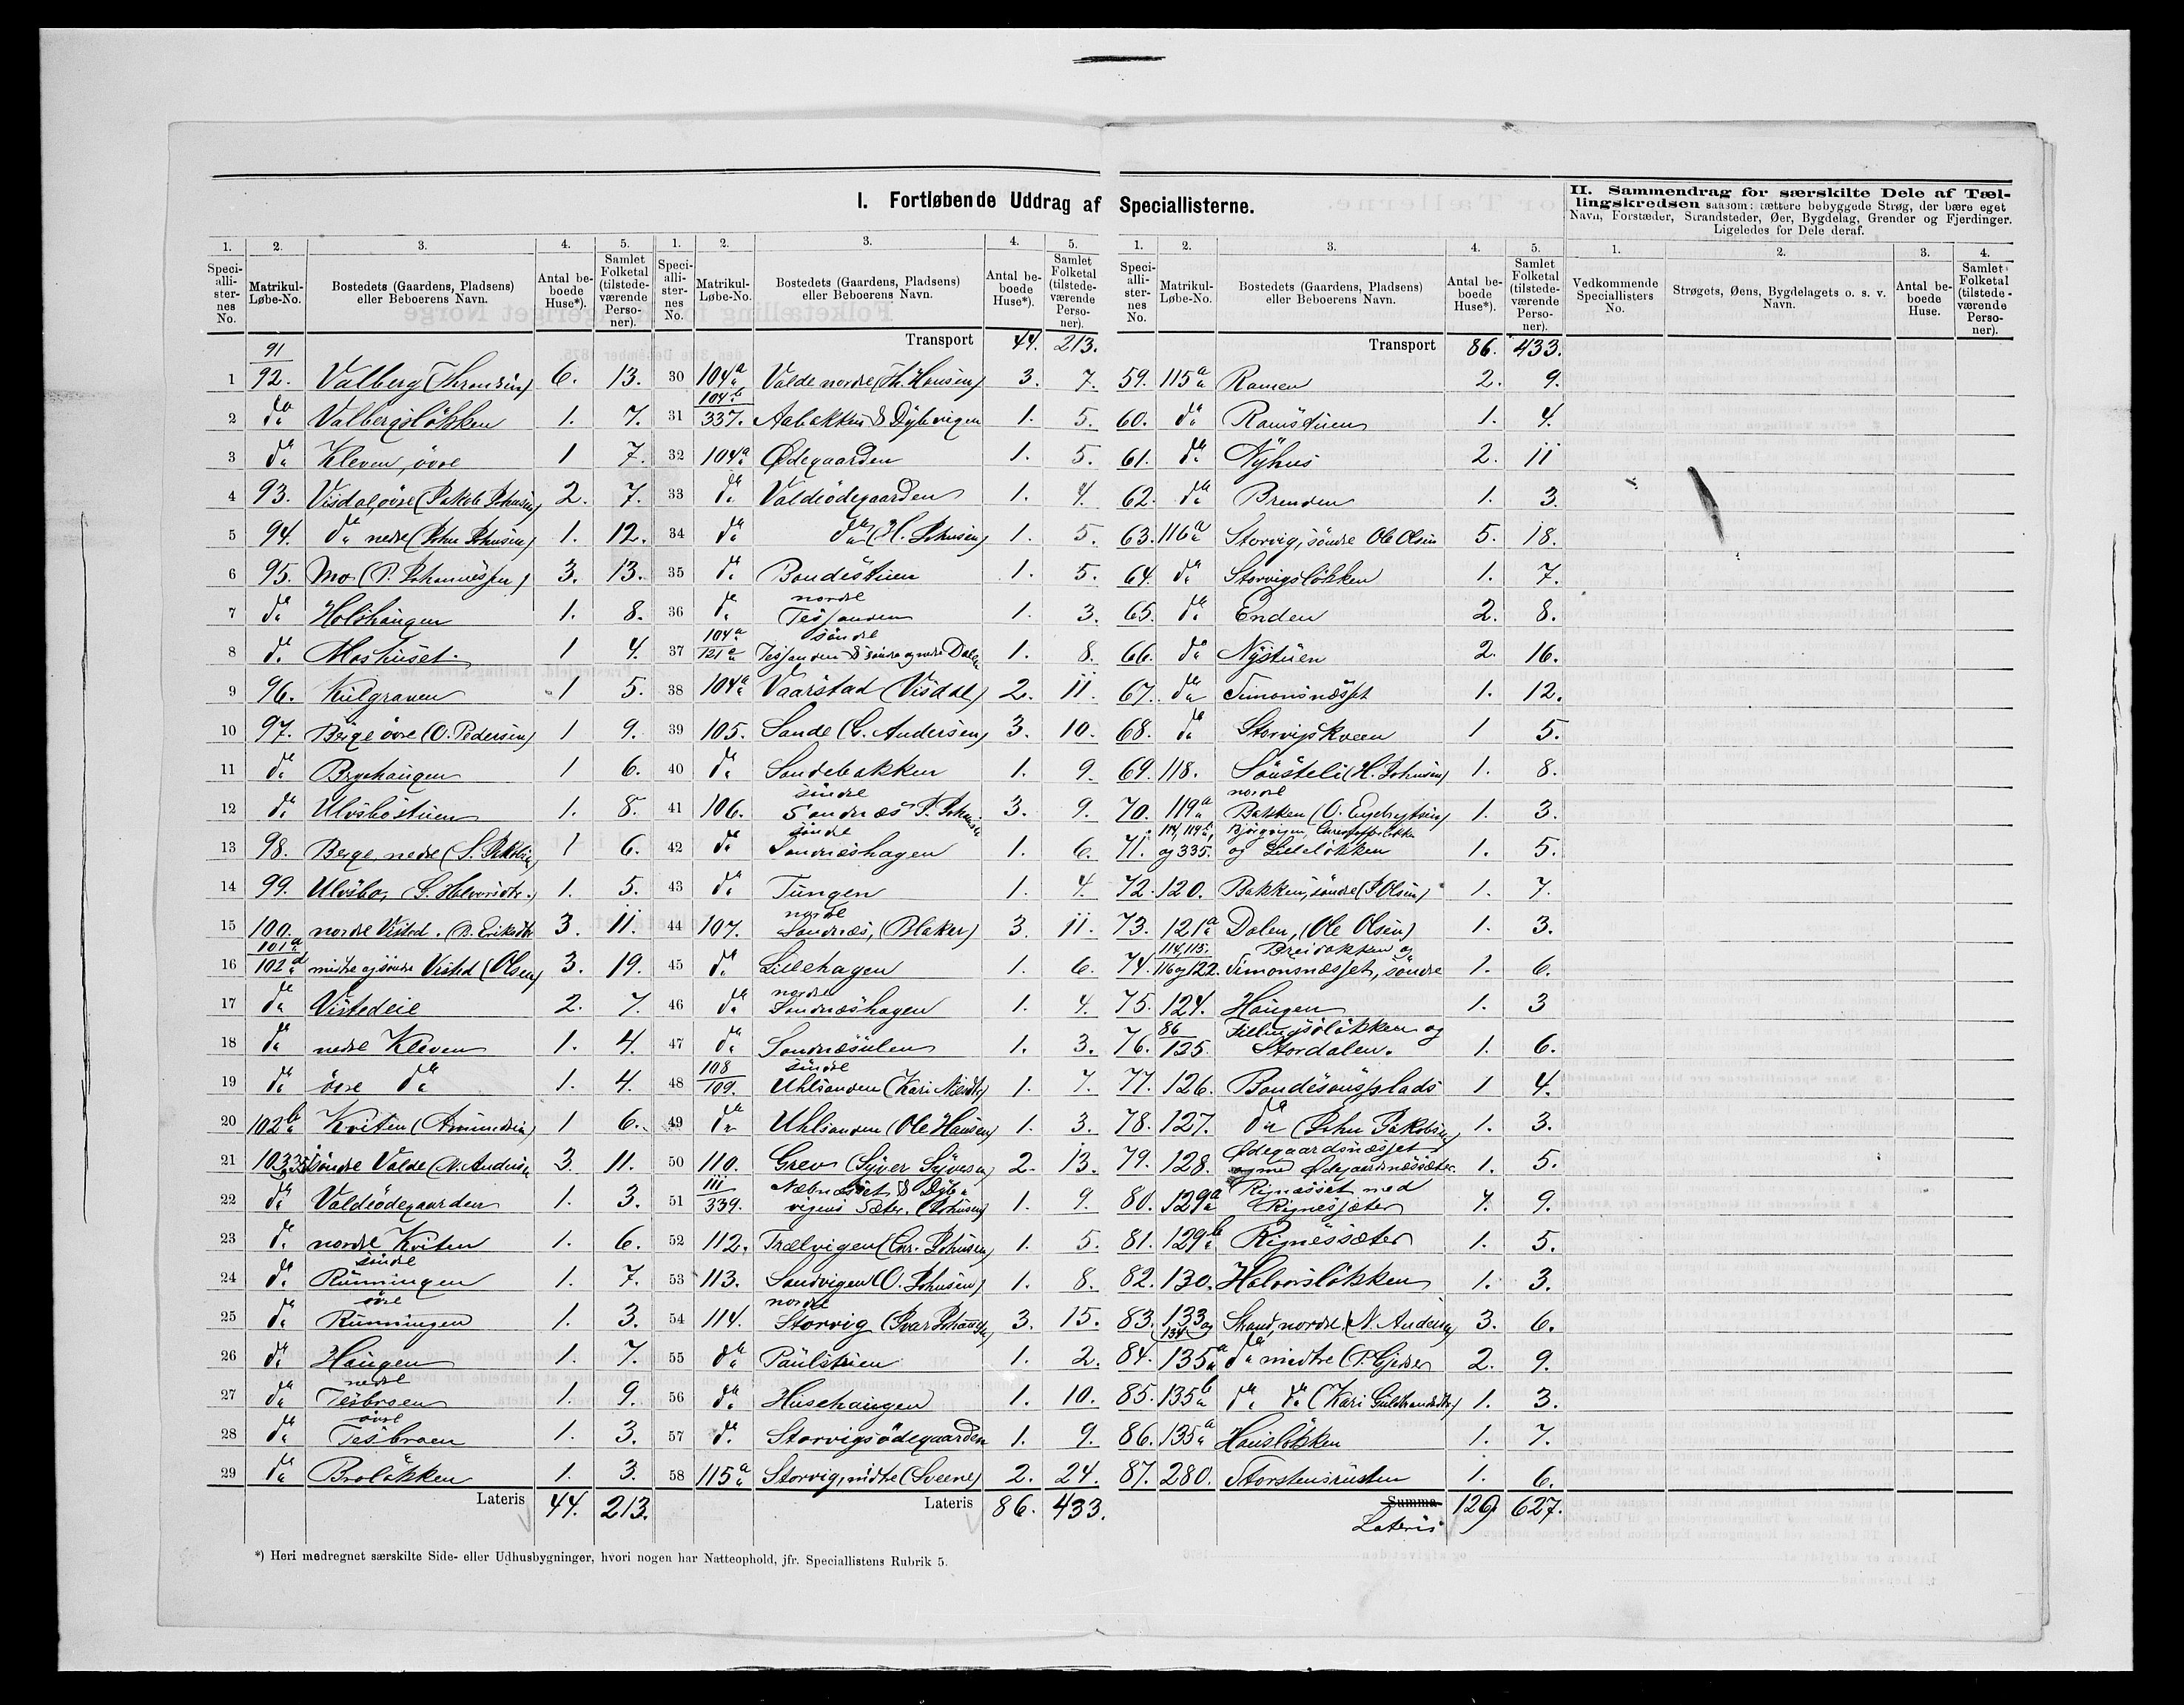 I. Fortløbende Uddrag af Speciallisterne.
II. Sammendrag for særskilte Dele af Tæl-
lingskredsen saasom: tættere bebyggede Strøg, der bære eget
Navn, Forstæder, Strandsteder, Øer, Bygdelag, Grender og Fjerdinger.
Ligeledes for Dele deraf.
1. 2. 3. 4. 5.
Speciallisternes No. Matrikul-Løbe-No. Bostedets (Gaardens, Pladsens) eller Beboerens Navn. Antal beboede Huse*). Samlet Folketal (tilstedeværende Personer).
91
1 92. Valberg 6. 13.
2 do Valbergsløkken 1. 7.
3 do Kleven, övre 1 7.
4 93. Visdal, övre 2. 7.
5 94. do nedre 1. 12.
6 95. Mo (P. Johannessen) 3. 13.
7 do Holshaugen 1. 8.
8 do Moshuset 1 4.
9 96. Kulgraven 1 5.
10 97. Berge övre (O. Pedersen) 1 9.
11 do Brynhaugen 1 6.
12 do Ulvsbostuen 1. 8.
13 98. Berge, nedre 1 6.
14 99. Ulvsbo, 1. 5.
15 100. nordre Visted. 3. 11.
101a
16 102d midtre og søndre Visted (Olsen) 3. 19.
17 do Vistedeie 2. 7.
18 do nedre Kleven 1. 4.
19 do övre do 1. 4.
20 102b Kviten 1 6.
21 103 søndre Valde 3. 11.
22 do Valdeödegaarden 1. 3.
23 do nordre Kviten 1. 6.
24 do søndre Rünningen 1. 7.
25 do övre Rünningen 1. 3.
26 do Haugen 1. 7.
27 do nedre Tesbroen 1. 9.
28 do övre Tesbroen 1. 3.
29 do Broløkken 1. 3.
Lateris 44. 213.
1. 2. 3. 4. 5.
Speciallisternes No. Matrikul-Løbe-No. Bostedets (Gaardens, Pladsens) eller Beboerens Navn. Antal beboede Huse*). Samlet Folketal (tilstedeværende Personer).
Transport 44. 213.
30 104a Valde nordre 3. 7.
104b
31 337. Aabakken & Dybvigen 1. 5.
32 104a Ødegaarden 1. 5.
33 do Valdeödegaarden 1. 4.
34 do do 1. 5.
35 do Bondestuen 1. 5.
36 do nordre Tessanden 1. 3.
104a søndre
37 121a Tessanden 1. 8.
38 104a Vaarstad (Visdal) 2. 11.
39 105. Sande (G. Andersen) 3. 10.
40 do Sandebakken 1. 9.
41 106. søndre Sandnæs 3. 9.
42 do søndre Sandnæshagen 1. 6.
43 do Tungen 1. 4.
44 107. nordre Sandnæs, (Blaker) 3. 11.
45 do Lillehagen 1. 6.
46 do nordre Sandnæshagen 1. 4.
47 do 1. 3.
108 søndre
48 109. Uhlsanden 1. 7.
49 do Uhlsanden (Ole Hansen) 1. 3.
50 110. Grev 2. 13.
111
51 339. 1. 9.
52 112. Trælvigen 1. 5.
53 113. Sandvigen 1. 8.
54 114. nordre Storvig 3. 15.
55 do Paulstuen 1. 2.
56 do Husehaugen 1. 10.
57 do Storvigsödegaarden 1. 9.
58 115a Storvig, midtre 2. 24.
Lateris 86. 433.
1. 2. 3. 4. 5.
Speciallisternes No. Matrikul-Løbe-No. Bostedets (Gaardens, Pladsens) eller Beboerens Navn. Antal beboede Huse*). Samlet Folketal (tilstedeværende Personer).
Transport 86. 433.
59. 115a Ramen 2. 9.
60. do Ramstuen 1. 4.
61. do Nyhus 2. 11
62. do Brenden 1. 3.
63. 116a Storvig, søndre Ole Olsen 5. 18.
64. do Storvigsløkken 1. 7.
65. do Enden 2. 8.
66. do Nystuen 2. 16.
67. do Simonsnæsset 1. 12.
68. do Storvigskveen 1 5.
69. 118. 1. 8.
70. 119a nordre Bakken 1. 3.
71. og 335. og Lilleløkken 1. 5.
72. 120. Bakken, søndre 1. 7.
73. 121a Dalen, (Ole Olsen) 1. 3.
114, 115.
74. 116 og 122. Simonsnæsset, søndre 1. 6.
75. 124. Haugen 1. 3
86
76. 125. Stordalen. 1. 6.
77. 126. 1 4.
78. 127. do 1. 3.
79. 128. Ødegaardsnæsset 1. 5.
80. 129a Rignæsset med 9.
81. 129b Rignessæter 1. 5.
82. 130. Halvorsløkken 1. 3.
83. 133 og 134 Strand, nordre. 3. 6.
84. 135a do midtre 2. 9.
85. 135b do do 1. 3.
86. 135a Hansløkken 1. 7.
87. 280. 1. 6.
Summa Lateris 129 627.
1. 2. 3. 4.
Vedkommende Speciallisters No. Strøgets, Øens, Bygdelagets o. s. v. Navn. Antal beboede Huse. Samlet Folketal (tilstedeværende Personer).
*) Heri medregnet særskilte Side- eller Udhusbygninger, hvori nogen har Natteophold, jfr. Speciallistens Rubrik 5.